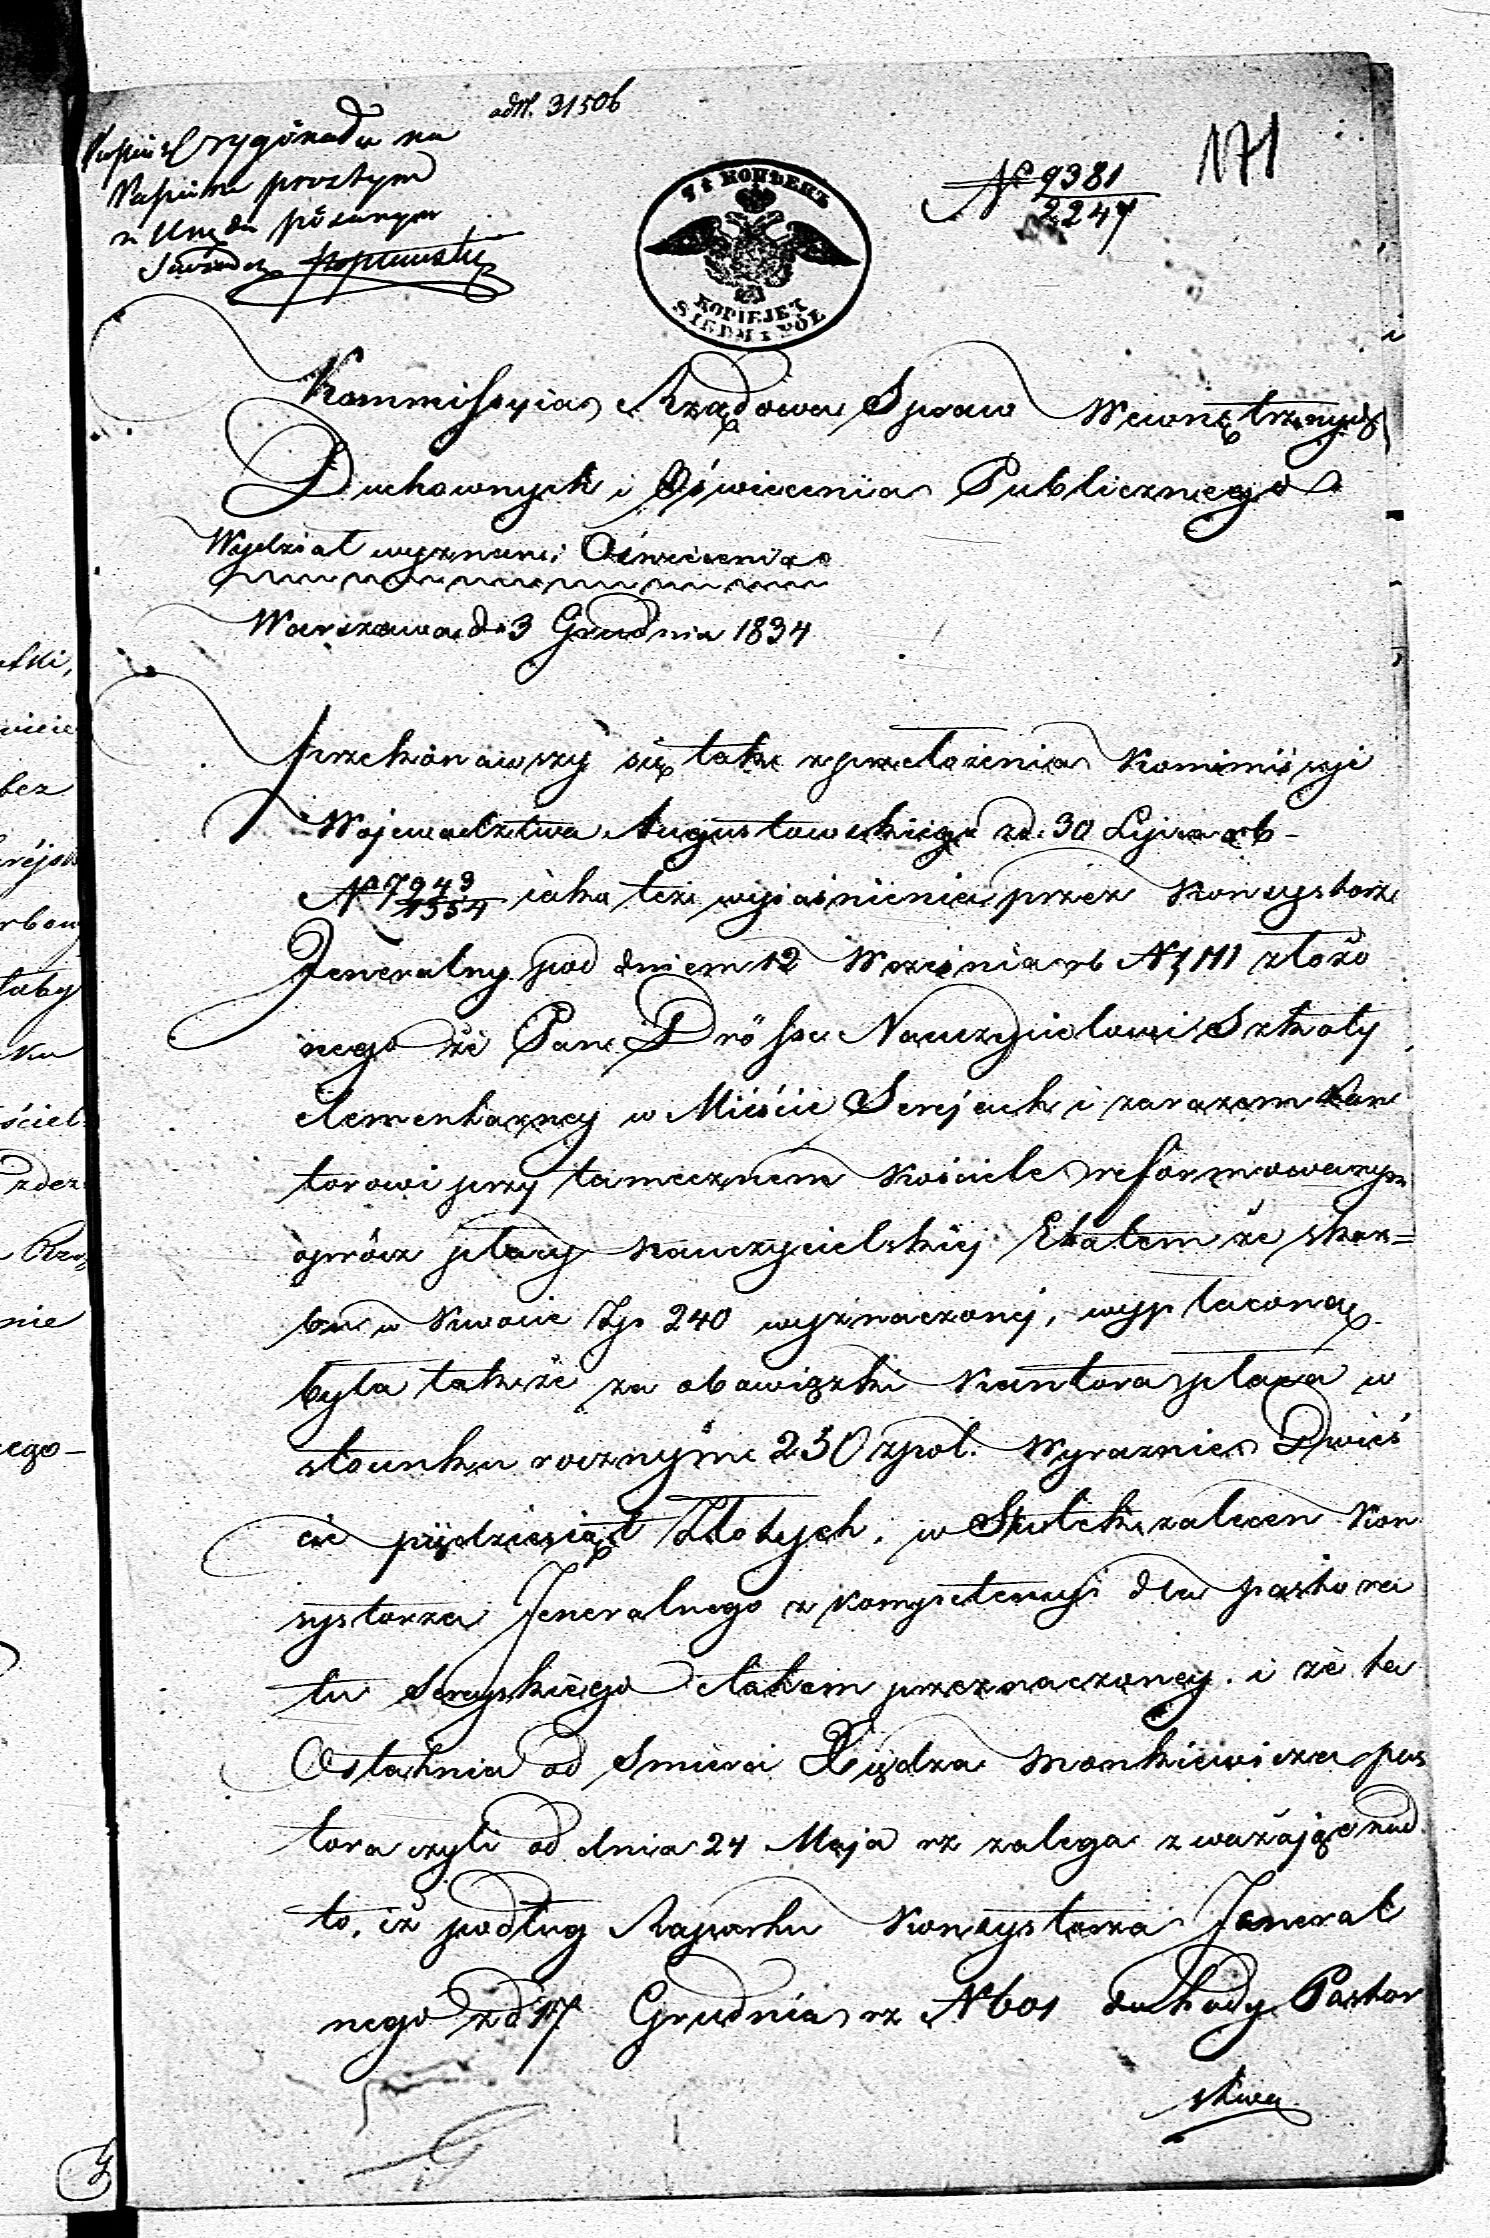 ad N. 31506
171
Kopia z Orygónadu na
Papierze prostym
w Urzędu pisanym
№ 9381
2247
7½ КОПѢЕКЪ
KOPIEJEK
SIEDM i PÓŁ
Kommissyia Rządowa Spraw Wewnętrznych
Duchownych i Oświecenia Publicznego
Wydział wyznan i Oświecenia
Warszawa d. 3 Grudnia 1834
Przekonawszy się tak z przełożenia Kommissyi
Wojewodztwa Augustowskiego z d. 30 Lipca rb
№ 7943
1554 iako też wyiaśnienia przez Konsystorz
Jeneralny pod dniem 12 Września rb № 111 złożo
nego że Pan Drösse Nauczycielowi Szkoły
elementarney w Mieście Serejach i zarazem Kan
torowi przy tamecznem Kościele reformowanym
oprócz płacy nauczycielskiej Etatem ze skar=
bu w Kwocie Zp 240 wyznaczonej, wypłaconą
była także za obowiązki Kantora płaca w
stounku rocznym 250 zpol. Wyraznie Dwieś
cie piędziesiąt Złotych, w Skutek zaleceń Kon
systorza Jeneralnego z kompetencyi dla pastora
tu Sereyskiego etatem przeznaczoney. i że ta
Ostatnia od Smierci Xiędza Monkiewicza pas
tora czyli od dnia 24 Maja rz zalega zważając nad
to, iż podług Raportu Konsystorza Jeneral
nego z d 17 Grudnia rz № 601 dochody Pastor
stwa